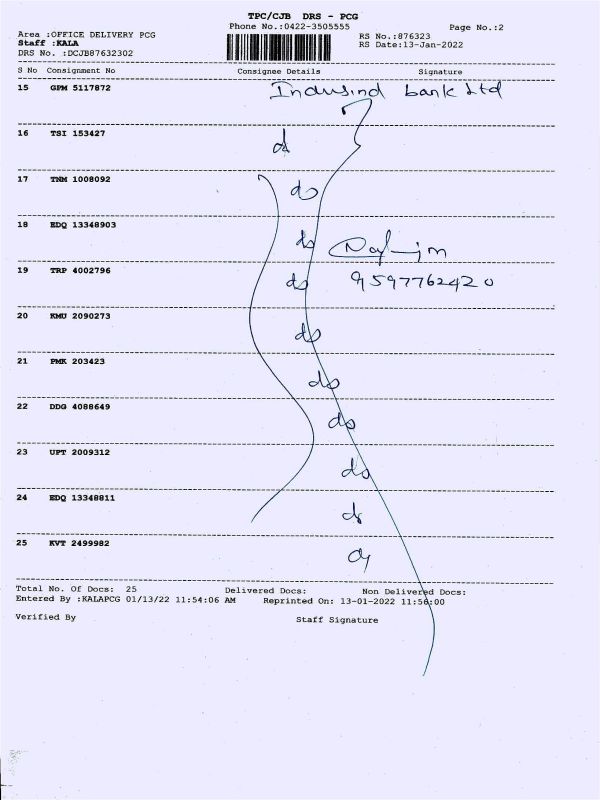 TPC/CJB DRS - PCG
Phone No.:0422-3505555
Page No.:2
Area :OFFICE DELIVERY PCG
RS No.:876323
Staff :KALA
RS Date:13-Jan-2022
DRS No. :DCJB87632302
S No Consignment No Consignee Details Signature
15 GPM 5117872 Indusind bank Ltd
16 TSI 153427 do
17 TNM 1008092 do
18 EDQ 13348903 do
19 TRP 4002796 do 9597762420
20 KMU 2090273 do
21 PMK 203423 do
22 DDG 4088649 do
23 UPT 2009312 do
24 EDQ 13348811 do
25 KVT 2499982 do
Total No. Of Docs: 25 Delivered Docs: Non Delivered Docs:
Entered By :KALAPCG 01/13/22 11:54:06 AM Reprinted On: 13-01-2022 11:56:00
Verified By Staff Signature